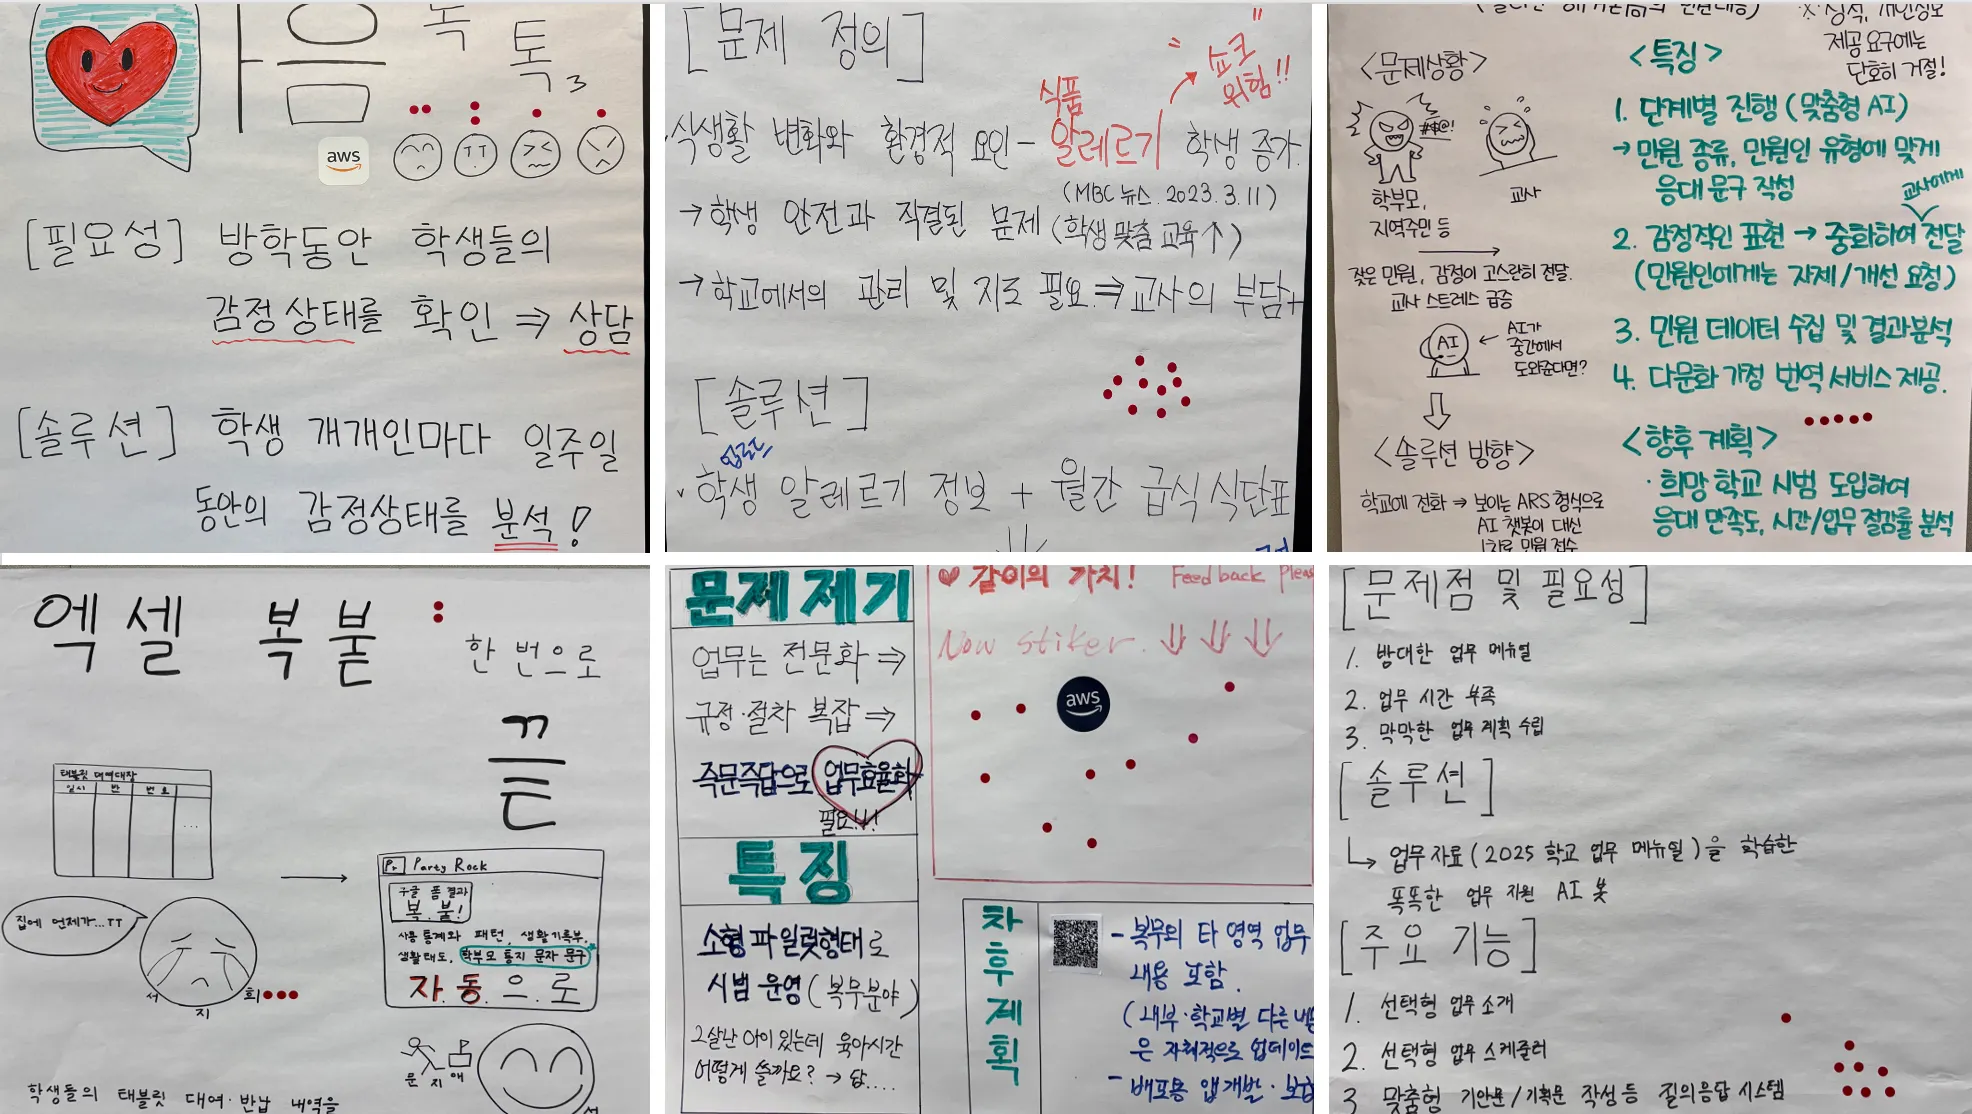 음
톡
톡 3
aws
[필요성] 방학동안 학생들의
감정상태를 확인 ⇒ 상담
[솔루션] 학생 개개인마다 일주일
동안의 감정상태를 분석!
[문제 정의]
"쇼크 위험!!"
식품
식생활 변화와 환경적 요인 - 알레르기 학생 증가.
(MBC 뉴스. 2023.3.11)
→ 학생 안전과 직결된 문제 (학생 맞춤 교육↑)
→ 학교에서의 관리 및 지도 필요. ⇒ 교사의 부담+
[솔루션]
학생 알레르기 정보 + 월간 급식 식단표
제공 요구에는
단호히 거절!
<문제상황>
#$@!
학부모,
지역주민 등
교사
잦은 민원, 감정이 고스란히 전달.
교사 스트레스 급승
AI
← AI가
중간에서
도와준다면?
<솔루션 방향>
학교에 전화 → 보이는 ARS 형식으로
AI 챗봇이 대신
1차로 민원 접수
<특징>
1. 단계별 진행 (맞춤형 AI)
→ 민원 종류, 민원인 유형에 맞게
응대 문구 작성
교사에게
2. 감정적인 표현 → 중화하여 전달
(민원인에게는 자제/개선 요청)
3. 민원 데이터 수집 및 결과분석
4. 다문화 가정 번역 서비스 제공.
<향후 계획>
· 희망 학교 시범 도입하여
응대 만족도, 시간/업무 절감률 분석
엑셀 복붙
한 번으로
끝
태블릿 대여대장
일시 반 번호
...
집에 언제가...TT
서 지 희
Pr Party Rock
구글 폼 결과
복.붙!
사용 통계와 패턴, 생활기록부,
생활태도, 학부모 통지 문자 문구
자.동.으.로
문 지 애
학생들의 태블릿 대여·반납 내역을
문제제기
업무는 전문화 ⇒
규정·절차 복잡 ⇒
즉문즉답으로 업무효율화
필요!!!
특징
소형 파일럿형태로
시범 운영 (복무분야)
2살난 아이 있는데 육아시간
어떻게 쓸까요? → 답....
♥ 같이의 가치! Feedback Pleas
Now stiker. ↓↓ ↓↓ ↓↓
aws
차후계획
- 복무외 타 영역 업무
내용 포함.
(내부·학교별 다른 내용
은 자체적으로 업데이트
- 배포용 앱개발·보급
[문제점 및 필요성]
1. 방대한 업무 메뉴얼
2. 업무 시간 부족
3. 막막한 업무 계획 수립
[솔루션]
↳ 업무자료(2025 학교 업무 메뉴얼)을 학습한
똑똑한 업무 지원 AI 봇
[주요 기능]
1. 선택형 업무 소개
2. 선택형 업무 스케줄러
3 맞춤형 기안문/기획문 작성 등 질의응답 시스템